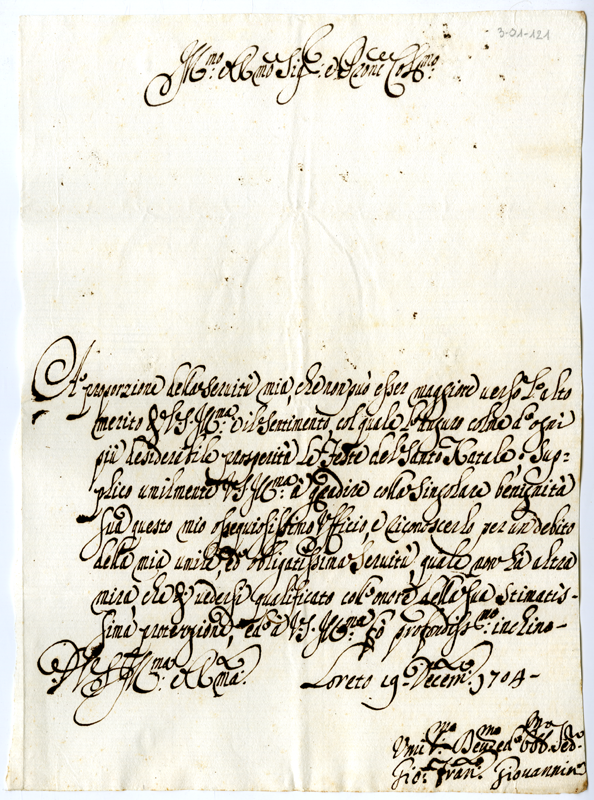 3-01-121
Ill.mo e R.mo Sig.r e Pron.e Col.mo
A proporzione della servitù mia, che non può esser maggiore verso l'alto
merito di V.S. Ill.ma è il sentimento, col quale le auguro colme d'ogni
più desiderabile prosperità le Feste del Santo Natale. Sup-
plico umilmente V.S. Ill.ma à gradire colla singolare benignità
sua questo mio ossequiosissimo ufficio, e riconoscerlo per un debito
della mia umile, ed obligatissima servitù, quale non hà altra
mira, che di vedersi qualificato coll'onore della sua stimatis-
sima protezione, ed a V.S. Ill.ma fò profondiss.mo inchino-
D.V.S. Ill.ma e R.ma. Loreto 19. Decem. 1704-
Umil.mo Dev.mo ed Obb.mo Ser.
Gio: Fran. Giovannini